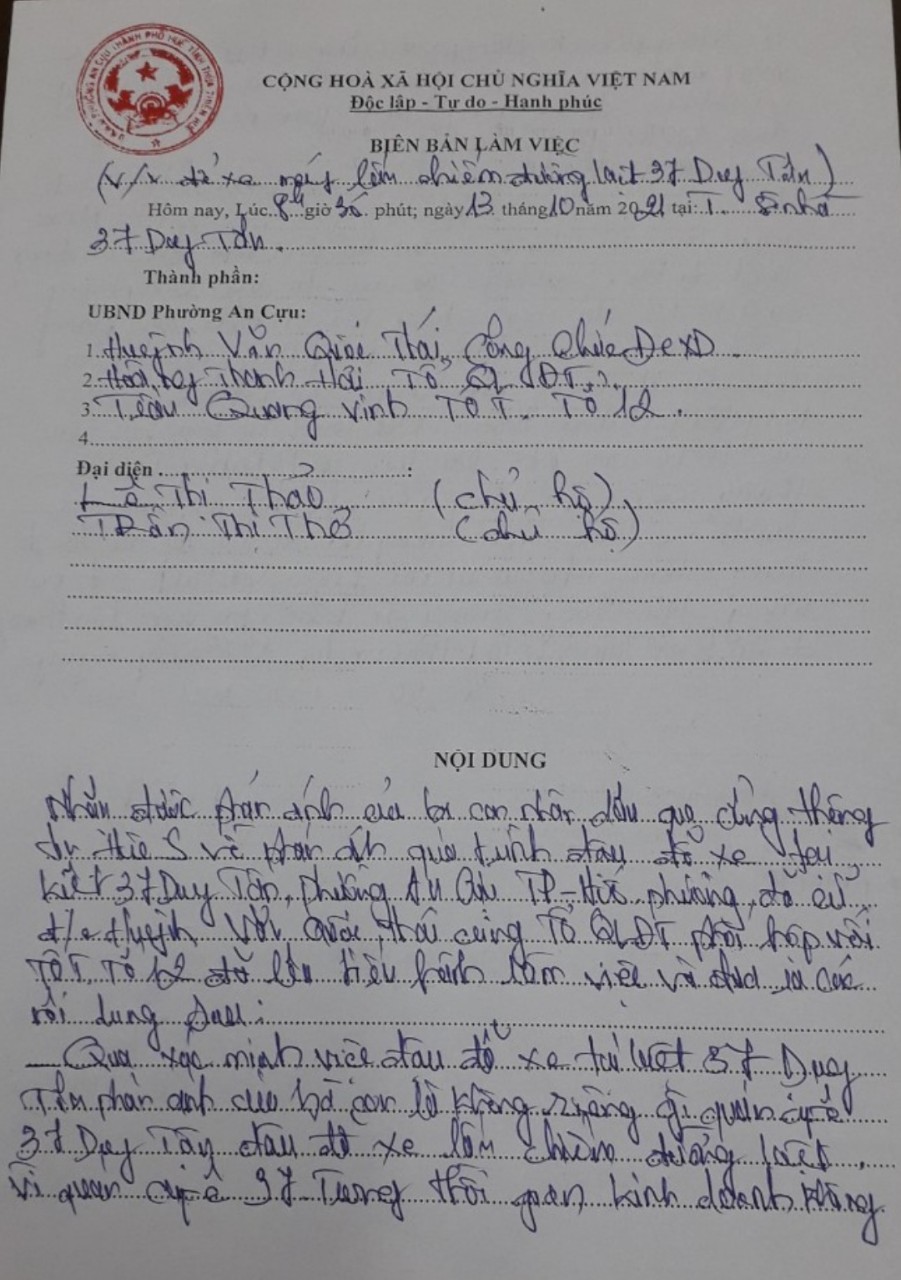 U.B.N.D PHƯỜNG AN CỰU THÀNH PHỐ HUẾ TỈNH THỪA THIÊN HUẾ
CỘNG HOÀ XÃ HỘI CHỦ NGHĨA VIỆT NAM
Độc lập - Tự do - Hạnh phúc
BIÊN BẢN LÀM VIỆC
(V/v để xe máy lấn chiếm đường kiệt 37 Duy Tân)
Hôm nay, Lúc 8h giờ 30 phút; ngày 13 tháng 10 năm 2021 tại: Số nhà
37 Duy Tân.
Thành phần:
UBND Phường An Cựu:
1. Huỳnh Văn Quốc Thái, Công chức ĐCXD.
2. Hoàng Thanh Hải Tổ QLĐT
3. Trần Quang Vinh TDT. Tổ 12.
4
Đại diện :
Lê Thị Thảo (chủ hộ)
Trần Thị Thơ (chủ hộ)
NỘI DUNG
Nhận được phản ánh của bà con nhân dân qua cổng thông
Hue S về phản ánh quá trình đậu đỗ xe tại
kiệt 37 Duy Tân, phường An Cựu TP-Huế phường đã cử
đ/c Huỳnh Văn Quốc Thái cùng Tổ QLĐT phối hợp với
TDT Tổ 12 đã lên tiến hành làm việc và đưa ra các
nội dung sau:
_ Qua xác minh việc đậu đỗ xe từ kiệt 37 Duy
Tân phản ánh của bà con là không riêng gì quán cafê
37 Duy Tân đậu đỗ xe lấn chiếm đường kiệt.
Vì quán cafê 37 Trong thời gian kinh doanh không